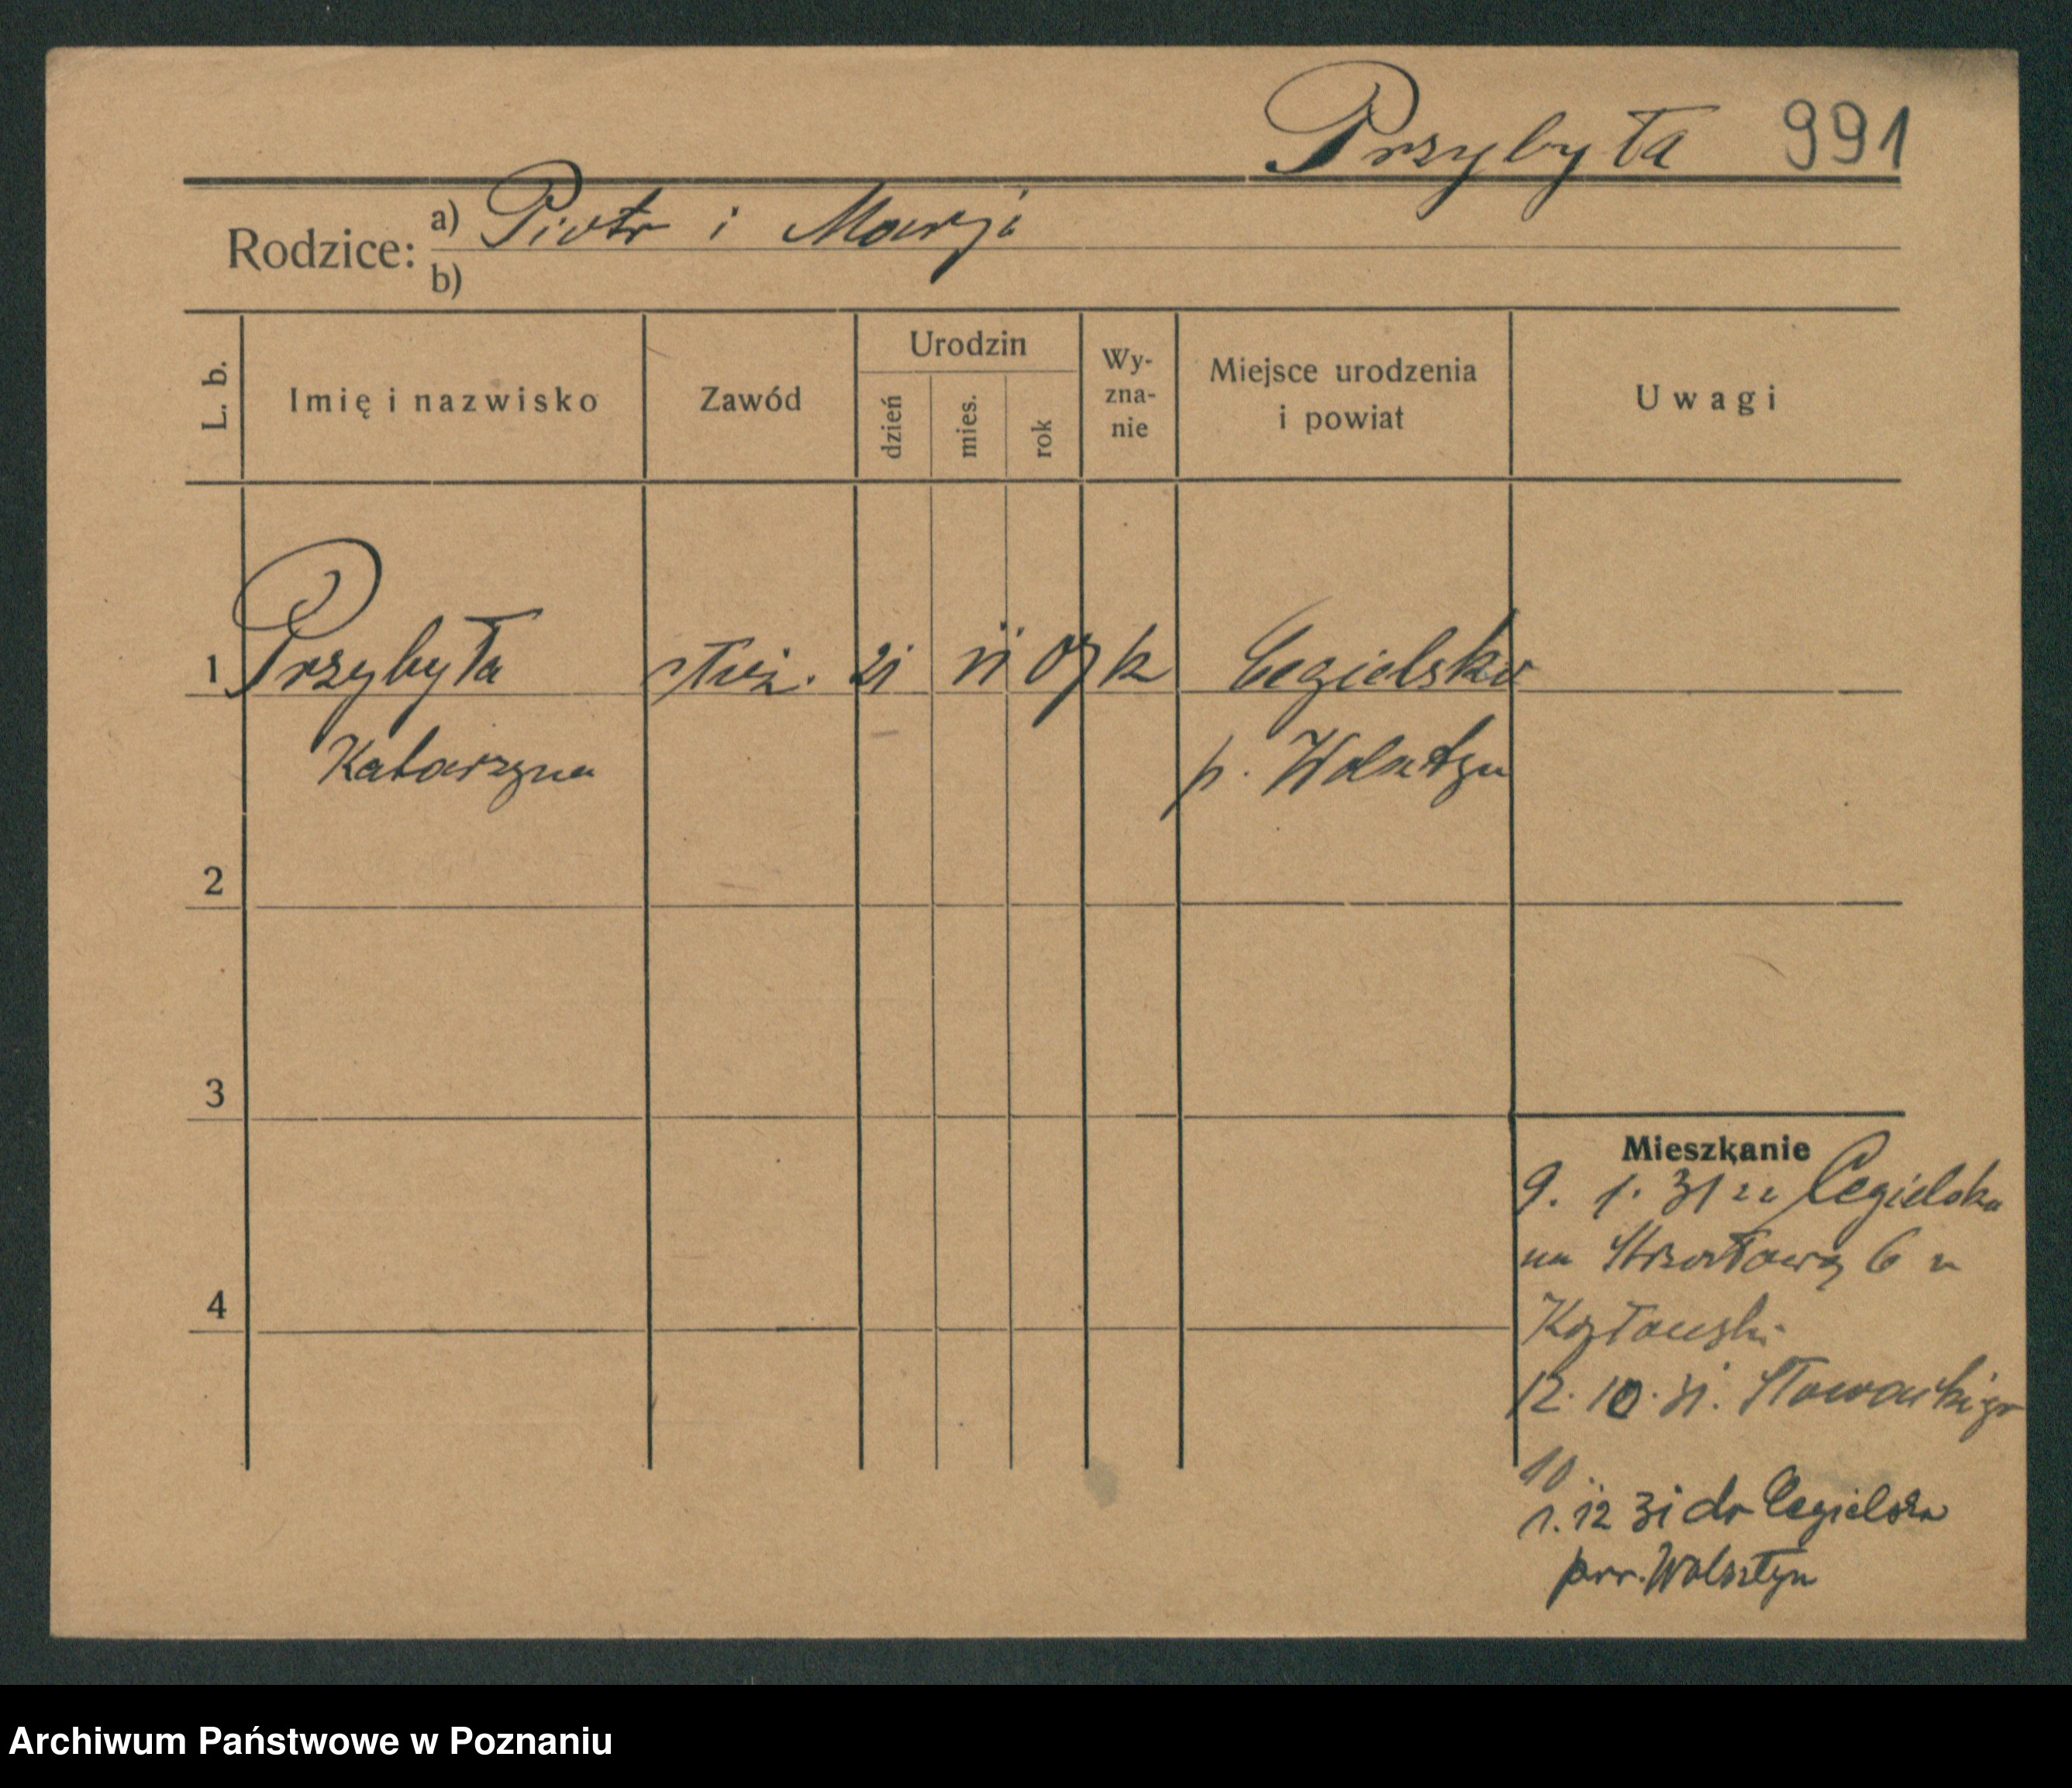 Przybyła 991
Rodzice: a) Piotr i Marja
b)
L. b. Imię i nazwisko Zawód Urodzin dzień mies. rok Wy-zna-nie Miejsce urodzenia i powiat Uwagi
1 Przybyła służ. 21 VI 07 k Cegielsko
Katarzyna p. Wolsztyn
2
3
4
Mieszkanie
9. 1. 31 ze Cegielska
na Strzałową 6 u
Kozłowski
12. 10. 31. Słowackiego
10.
1. 12 31 do Cegielska
pow. Wolsztyn
Archiwum Państwowe w Poznaniu